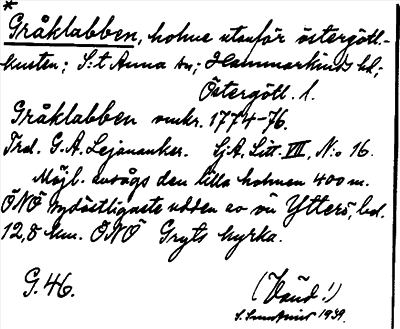 *
Gråklabben, holme utanför östergötl.-
kusten; S:t Anna sn; Hammarkinds hd,
Östergötl. l.
Gråklabben omkr. 1774-76.
Trol. G. A. Lejonanker. Sj.A. Litt. VIII, N:o 16.
Möjl. avsågs den lilla holmen 400 m.
ÖNÖ sydöstligaste udden av ön Ytterö, bel.
12,8 km. ÖNÖ Gryts kyrka.
G. 46.
1939.